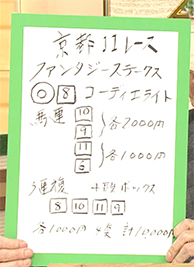 京都11レース
ファンタジーステークス
◎ 8 コーティエライト
馬連 10
9 各2000円
11
5 各1000円
3連複 4頭ボックス
8 10 11 9
各1000円 4複 計10,000円